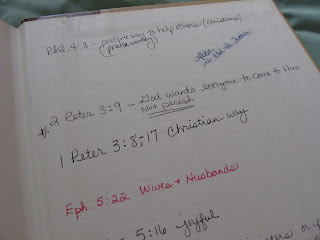 Phil. 4:8 - positive way to help others (Christians)
(praiseworthy)
is the
2 Peter 3:9 - God wants everyone to come to Him
Not perish
1 Peter 3:8;17 Christian way
Eph. 5:22 Wives + Husbands
5:16 joyful